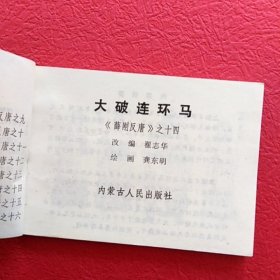 反唐之九
唐之十
之十一
之十二
之十三
之十四
之十五
之十六
大破连环马
《薛刚反唐》之十四
改编 崔志华
绘画 龚东明
内蒙古人民出版社